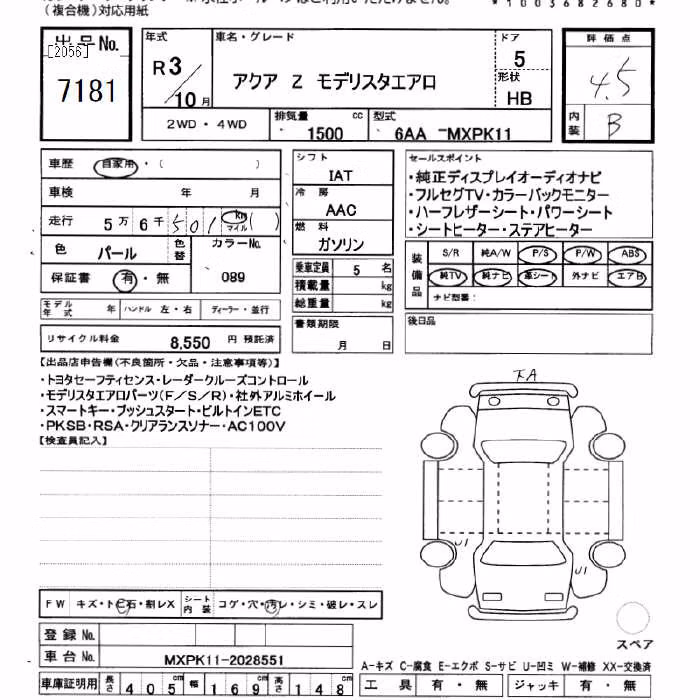 (複合機)対応用紙
*1003682680*
出品No.
[2056]
7181
年式
R3/10月
車名・グレード
アクア Z モデリスタエアロ
ドア
5
形状
HB
評価点
4.5
内装
B
2WD・4WD
排気量 1500 cc
型式 6AA -MXPK11
車歴 自家用・( )
車検 年 月
走行 5万6千501 km マイル ( )
色 パール 色替
カラーNo. 089
保証書 有・無
モデル年式 年 ハンドル 左・右 ディーラー・並行
リサイクル料金 8,550 円 預託済
シフト
IAT
冷房
AAC
燃料
ガソリン
乗車定員 5 名
積載量 kg
総重量 kg
書類期限
月 日
セールスポイント
・純正ディスプレイオーディオナビ
・フルセグTV・カラーバックモニター
・ハーフレザーシート・パワーシート
・シートヒーター・ステアヒーター
装備品
S/R 純A/W P/S P/W ABS
純TV 純ナビ 革シート 外ナビ エアB
ナビ型番:
後日品
【出品店申告欄(不良箇所・欠品・注意事項等)】
・トヨタセーフティセンス・レーダークルーズコントロール
・モデリスタエアロパーツ(F/S/R)・社外アルミホイール
・スマートキー・プッシュスタート・ビルトインETC
・PKSB・RSA・クリアランスソナー・AC100V
【検査員記入】
下A
U1
U1
スペア
FW キズ・トビ石・割レX シート内装 コゲ・穴・汚レ・シミ・破レ・スレ
登録 No.
車台 No. MXPK11-2028551
A-キズ C-腐食 E-エクボ S-サビ U-凹ミ W-補修 XX-交換済
車庫証明用 長さ 405 cm 幅 169 cm 高さ 148 cm
工具 有・無 ジャッキ 有・無